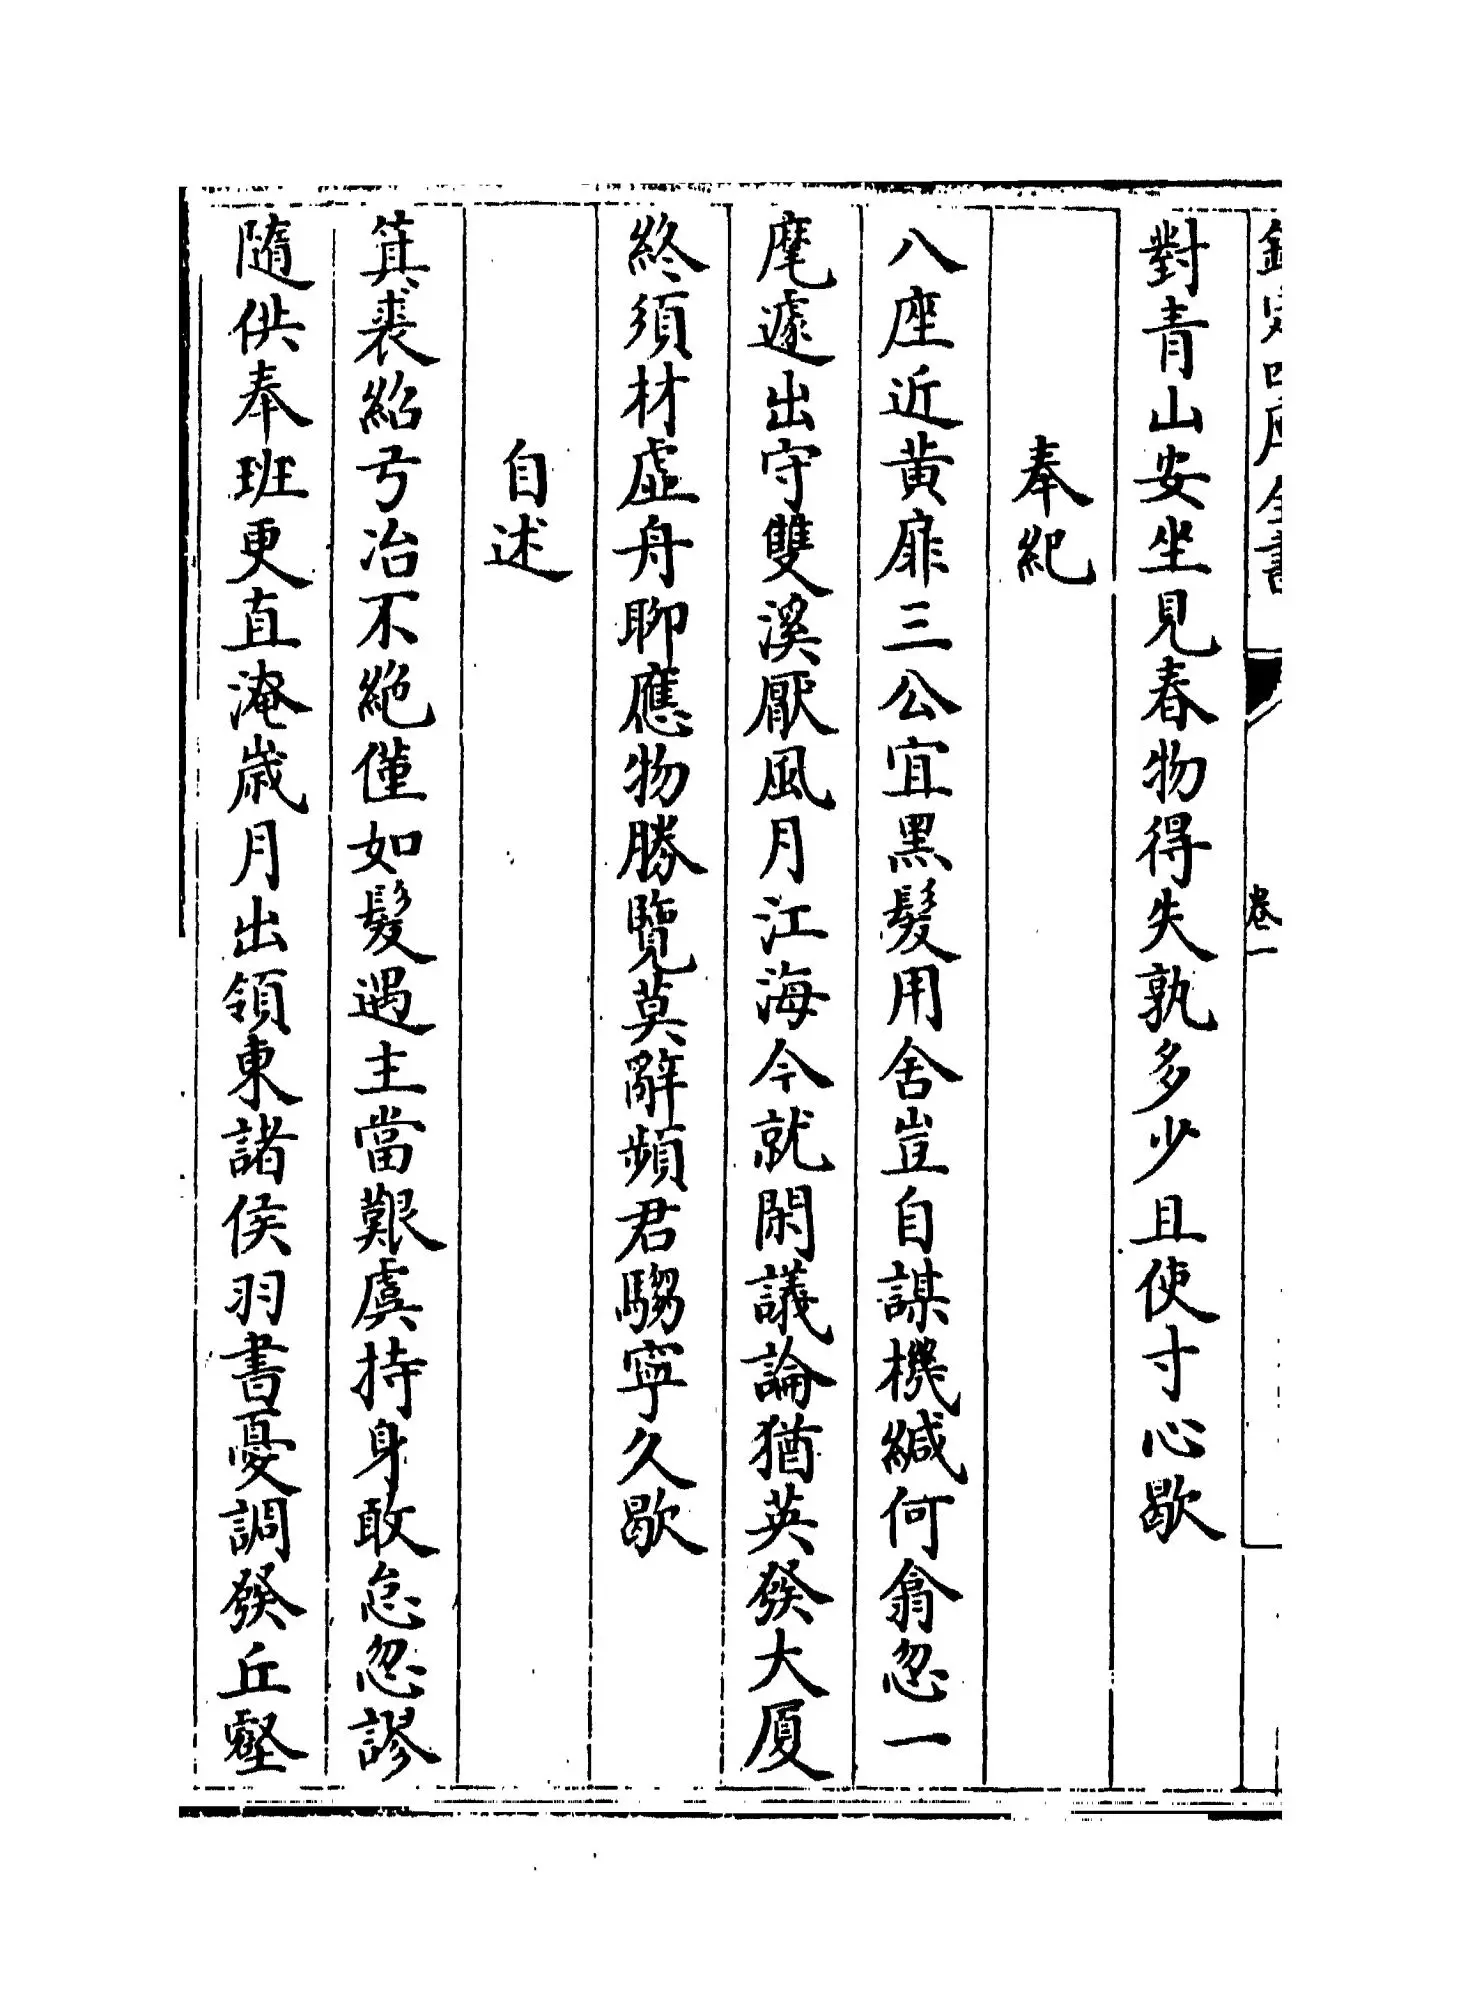 欽定四庫全書
卷一
對青山安坐見春物得失孰多少且使寸心歇
奉紀
八座近黄扉三公宜黑髮用舍豈自謀機緘何翕忽一
麾遽出守雙溪厭風月江海今就閑議論猶英發大厦
終須材虛舟聊應物勝覽莫辭頻君騶寧久歇
自述
箕裘紹弓冶不絶僅如髮遇主當艱虞持身敢怠忽謬
隨供奉班更直淹歳月出領東諸侯羽書憂調發丘壑